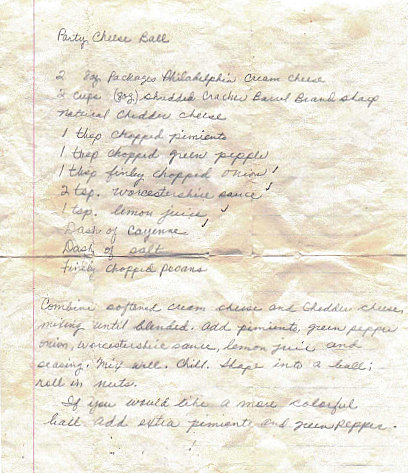 Party Cheese Ball
2 8oz. Packages Philadelphia Cream Cheese
2 cups (8oz) shredded Cracker Barrel Brand sharp
natural Chedder cheese
1 tbsp chopped pimiento
1 tbsp chopped green pepper
1 tbsp finley chopped onion
2 tsp. Worcestershire sauce
1 tsp. lemon juice
Dash of Cayenne
Dash of salt
Finely chopped pecans
Combine softened cream cheese and Chedder cheese,
mixing until blended. Add pimiento, green pepper
onion, Worcestershire sauce, lemon juice and
seasing. Mix well. Chill. Shape into a ball;
roll in nuts.
If you would like a more colorful
ball add extra pimiento and green pepper.